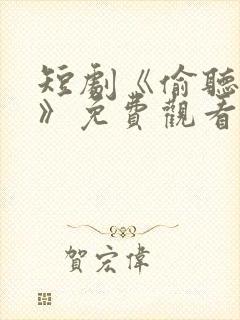 短劇《偷聽
》免費觀看
賀宏偉